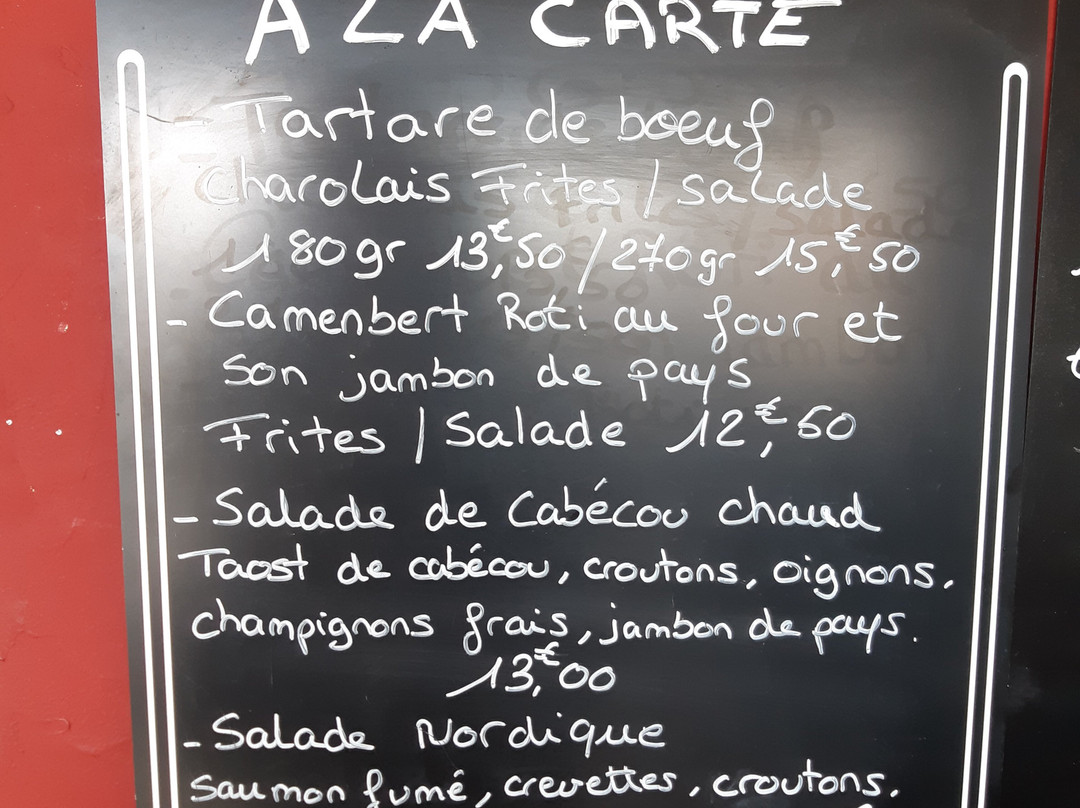 A LA CARTE
- Tartare de boeuf
Charolais Frites / Salade
180gr 13,€50 / 270gr 15,€50
- Camenbert Roti au four et
son jambon de pays
Frites / Salade 12,€50
- Salade de Cabécou chaud
Taost de cabécou, croutons, oignons,
champignons frais, jambon de pays.
13,€00
- Salade Nordique
Saumon fumé, crevettes, croutons,